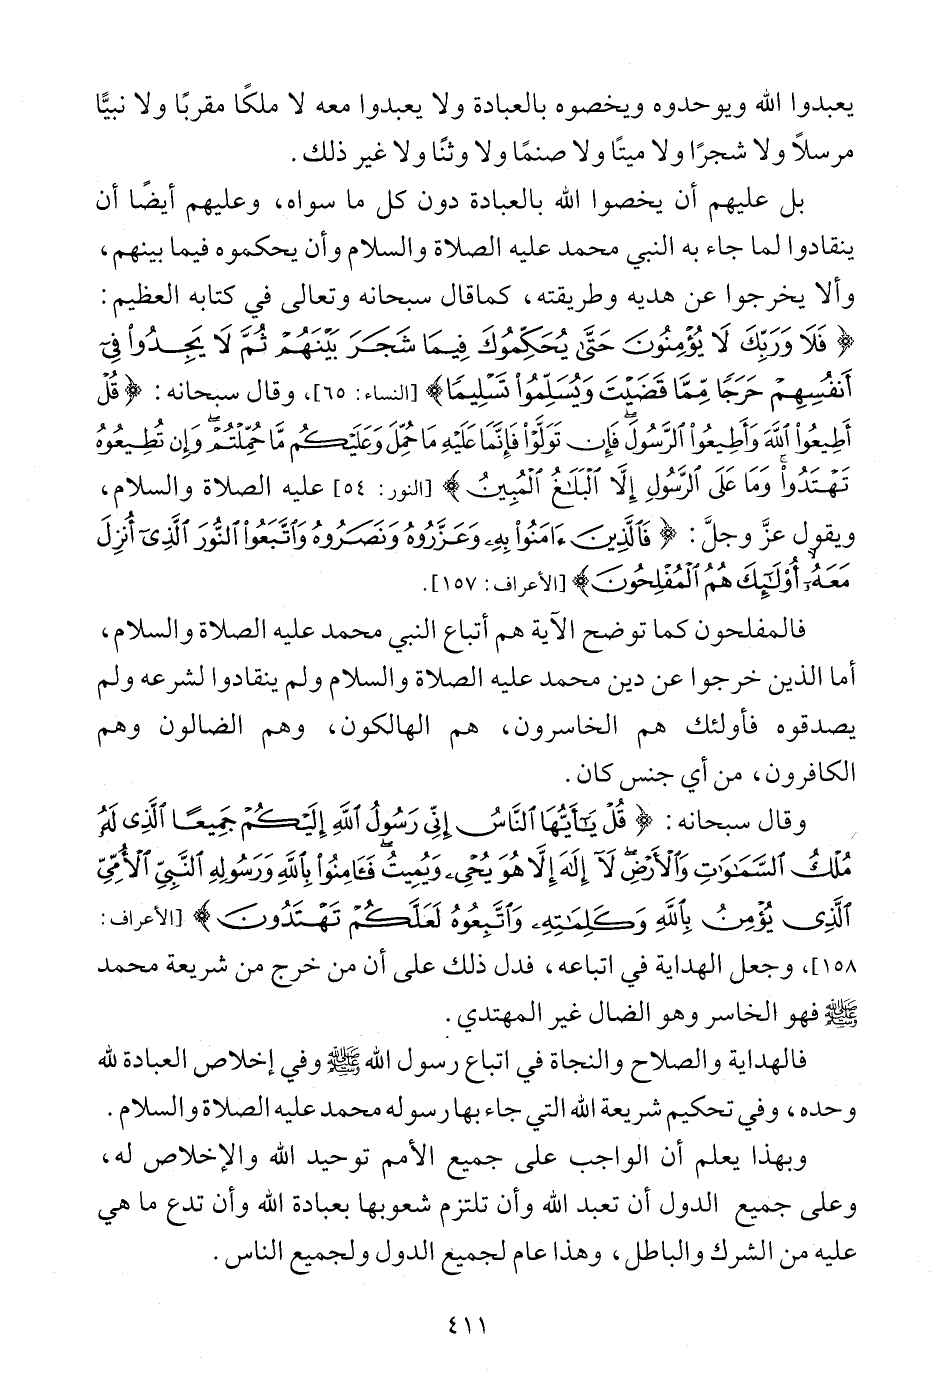 يعبدوا الله ويوحدوه ويخصوه بالعبادة ولا يعبدوا معه لا ملكًا مقربًا ولا نبيًّا
مرسلاً ولا شجرًا ولا ميتًا ولا صنمًا ولا وثنًا ولا غير ذلك.
بل عليهم أن يخصوا الله بالعبادة دون كل ما سواه، وعليهم أيضًا أن
ينقادوا لما جاء به النبي محمد عليه الصلاة والسلام وأن يحكموه فيما بينهم،
وألا يخرجوا عن هديه وطريقته، كماقال سبحانه وتعالى في كتابه العظيم:
﴿ فَلَا وَرَبِّكَ لَا يُؤْمِنُونَ حَتَّىٰ يُحَكِّمُوكَ فِيمَا شَجَرَ بَيْنَهُمْ ثُمَّ لَا يَجِدُوا۟ فِىٓ
أَنفُسِهِمْ حَرَجًا مِّمَّا قَضَيْتَ وَيُسَلِّمُوا۟ تَسْلِيمًا﴾ [النساء: ٦٥]، وقال سبحانه: ﴿ قُلْ
أَطِيعُوا۟ ٱللَّهَ وَأَطِيعُوا۟ ٱلرَّسُولَ ۖ فَإِن تَوَلَّوْا۟ فَإِنَّمَا عَلَيْهِ مَا حُمِّلَ وَعَلَيْكُم مَّا حُمِّلْتُمْ ۖ وَإِن تُطِيعُوهُ
تَهْتَدُوا۟ ۚ وَمَا عَلَى ٱلرَّسُولِ إِلَّا ٱلْبَلَـٰغُ ٱلْمُبِينُ ﴾ [النور: ٥٤] عليه الصلاة والسلام،
ويقول عزَّ وجلَّ: ﴿ فَٱلَّذِينَ ءَامَنُوا۟ بِهِۦ وَعَزَّرُوهُ وَنَصَرُوهُ وَٱتَّبَعُوا۟ ٱلنُّورَ ٱلَّذِىٓ أُنزِلَ
مَعَهُۥٓ ۙ أُو۟لَـٰٓئِكَ هُمُ ٱلْمُفْلِحُونَ﴾ [الأعراف: ١٥٧].
فالمفلحون كما توضح الآية هم أتباع النبي محمد عليه الصلاة والسلام،
أما الذين خرجوا عن دين محمد عليه الصلاة والسلام ولم ينقادوا لشرعه ولم
يصدقوه فأولئك هم الخاسرون، هم الهالكون، وهم الضالون وهم
الكافرون، من أي جنس كان.
وقال سبحانه: ﴿ قُلْ يَـٰٓأَيُّهَا ٱلنَّاسُ إِنِّى رَسُولُ ٱللَّهِ إِلَيْكُمْ جَمِيعًا ٱلَّذِى لَهُۥ
مُلْكُ ٱلسَّمَـٰوَٰتِ وَٱلْأَرْضِ ۖ لَآ إِلَـٰهَ إِلَّا هُوَ يُحْىِۦ وَيُمِيتُ ۖ فَـَٔامِنُوا۟ بِٱللَّهِ وَرَسُولِهِ ٱلنَّبِىِّ ٱلْأُمِّىِّ
ٱلَّذِى يُؤْمِنُ بِٱللَّهِ وَكَلِمَـٰتِهِۦ وَٱتَّبِعُوهُ لَعَلَّكُمْ تَهْتَدُونَ ﴾ [الأعراف:
١٥٨]، وجعل الهداية في اتباعه، فدل ذلك على أن من خرج من شريعة محمد
ﷺ فهو الخاسر وهو الضال غير المهتدي.
فالهداية والصلاح والنجاة في اتباع رسول الله ﷺ وفي إخلاص العبادة لله
وحده، وفي تحكيم شريعة الله التي جاء بها رسوله محمد عليه الصلاة والسلام.
وبهذا يعلم أن الواجب على جميع الأمم توحيد الله والإخلاص له،
وعلى جميع الدول أن تعبد الله وأن تلتزم شعوبها بعبادة الله وأن تدع ما هي
عليه من الشرك والباطل، وهذا عام لجميع الدول ولجميع الناس.
٤١١